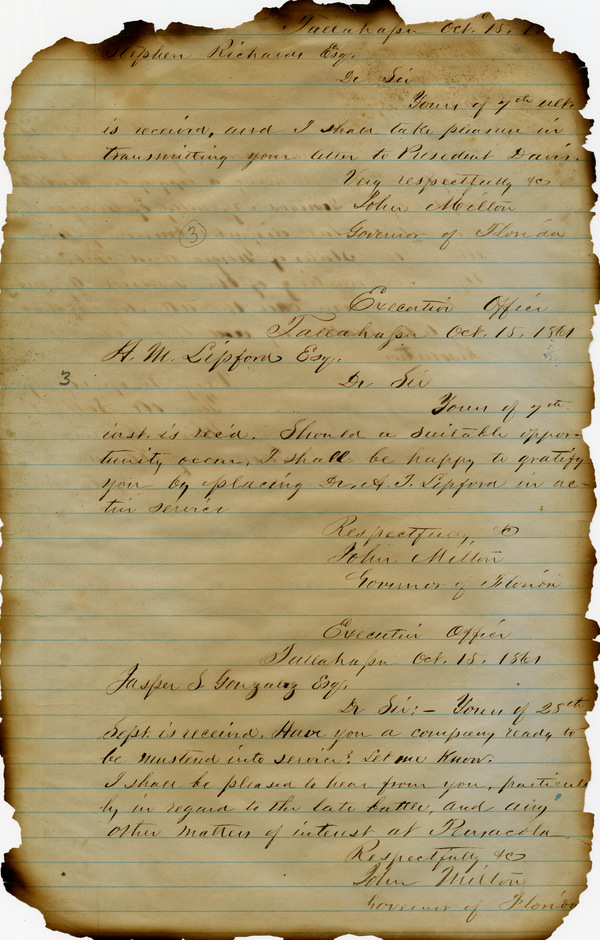 Tallahassee Oct. 15, 18
Stephen Richards Esq.
Dr Sir
Yours of 7th ult.
is received, and I shall take pleasure in
transmitting your letter to President Davis.
Very respectfully &c
John Milton
Governor of Florida
3
Executive Office
Tallahassee Oct. 15. 1861
H. M. Lipford Esq.
3
Dr Sir
Yours of 7th
inst. is rec'd. Should a suitable oppor-
tunity occur, I shall be happy to gratify
you by placing Dr. A. T. Lipford in ac-
tive service
Respectfully, &c
John Milton
Governor of Florida
Executive Office
Tallahassee Oct. 15. 1861
Jasper S. Gonzalez Esq.
Dr Sir;- Yours of 28th
Sept. is received. Have you a company ready to
be mustered into service? Let me know.
I shall be pleased to hear from you, particul
ly in regard to the late battle, and any
other matters of interest at Pensacola
Respectfully &c
John Milton
Governor of Florida